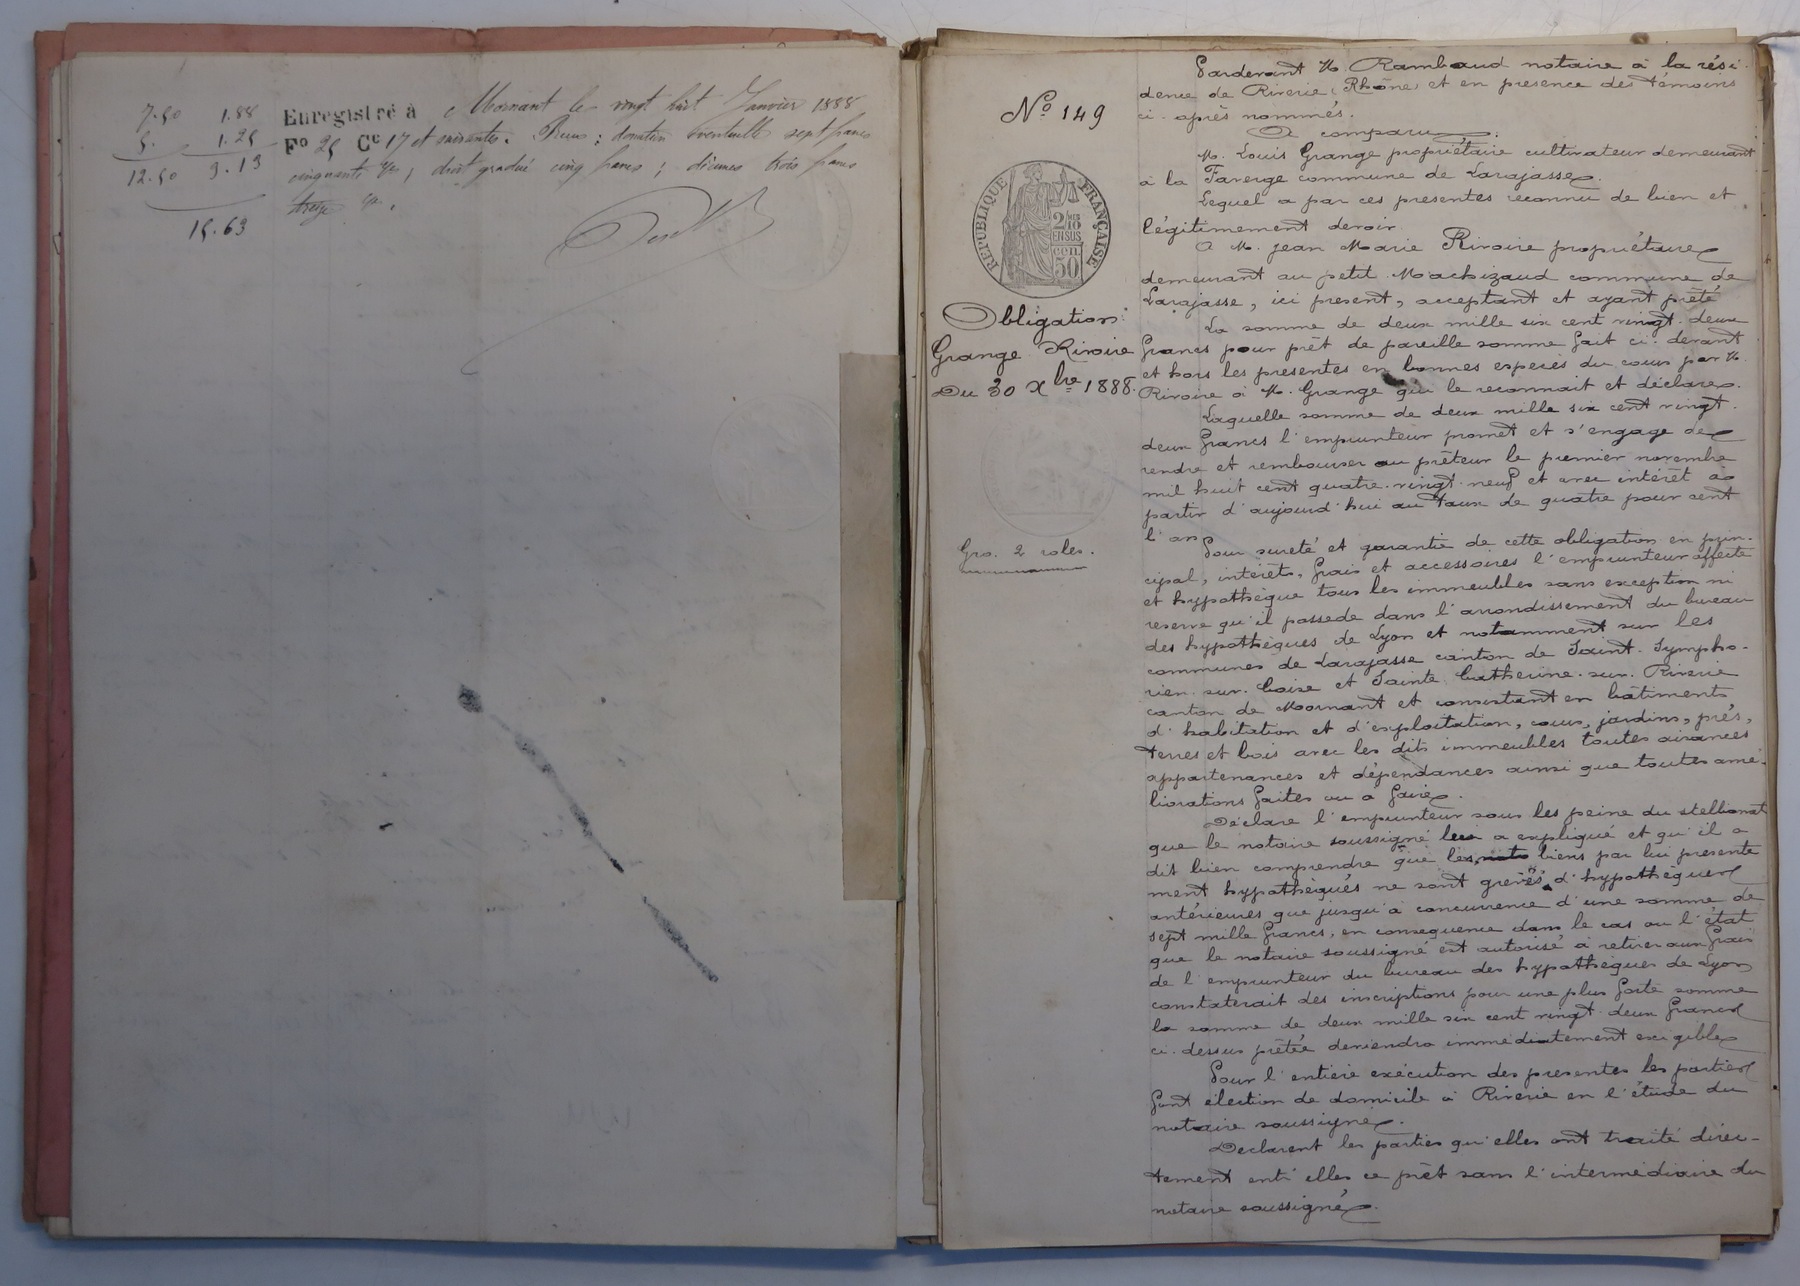 7.50 1.88
5. 1.25
12.50 3.13
15.63
Enregistré à Mornant le vingt huit Janvier 1888
Fo 25 Ce 17 et suivantes. Reçu : donation éventuelle sept francs
cinquante ces, droit gradué cinq francs ; décimes trois francs
treize ces.
No 149
RÉPUBLIQUE FRANÇAISE
2/10 MES
EN SUS
CEN
50
Obligation
Grange Rivoire
Du 30 Xbre 1888.
Gro. 2 roles.
Pardevant M. Rambaud notaire à la rési-
dence de Riverie (Rhône) et en presence des témoins
ci-après nommés.
A comparu :
M. Louis Grange propriétaire cultivateur demeurant
à la Faverge commune de Larajasse.
Lequel a par ces presentes reconnu de bien et
légitimement devoir
A M. Jean Marie Rivoire propriétaire
demeurant au petit Machizaud commune de
Larajasse, ici present, acceptant et ayant prêté
La somme de deux mille six cent vingt deux
francs pour prêt de pareille somme fait ci-devant
et hors les présentes en bonnes espèces du cours par M.
Rivoire à M. Grange qui le reconnait et déclare.
Laquelle somme de deux mille six cent vingt
deux francs l'emprunteur promet et s'engage de
rendre et rembourser au prêteur le premier novembre
mil huit cent quatre-vingt-neuf et avec intérêt à
partir d'aujourd'hui au taux de quatre pour cent
l'an
Pour sureté et garantie de cette obligation en prin-
cipal, intérêts, frais et accessoires l'emprunteur affecte
et hypothèque tous les immeubles sans exception ni
reserve qu'il possede dans l'arrondissement du bureau
des hypothèques de Lyon et notamment sur les
communes de Larajasse canton de Saint-Sympho-
rien-sur-Coise et Sainte Catherine-sur-Riverie
canton de Mornant et consistant en bâtiments
d'habitation et d'exploitation, cours, jardins, prés,
terres et bois avec les dits immeubles toutes aisances
appartenances et dépendances ainsi que toutes amé-
liorations faites ou à faire.
Déclare l'emprunteur sous les peine du stellionat
que le notaire soussigné lui a expliqué et qu'il a
dit bien comprendre que les biens par lui presente
ment hypothèqués ne sont grevés d'hypothèques
antérieures que jusqu'à concurrence d'une somme de
sept mille francs, en consequence dans le cas ou l'état
que le notaire soussigné est autorisé à retirer aux frais
de l'emprunteur du bureau des hypothèques de Lyon
constaterait des inscriptions pour une plus forte somme
la somme de deux mille six cent vingt deux francs
ci-dessus prêtée deviendra immediatement exigible
Pour l'entière exécution des presentes les parties
font élection de domicile à Riverie en l'étude du
notaire soussigné.
Declarent les parties qu'elles ont traité direc-
tement entr'elles ce prêt sans l'intermédiaire du
notaire soussigné.